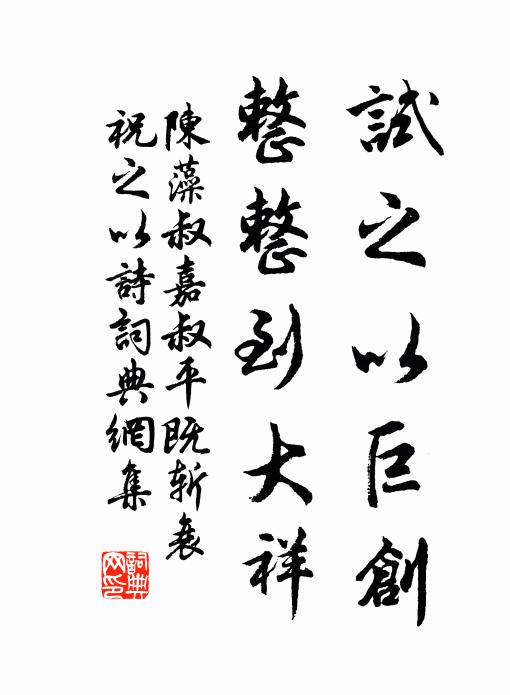 試之以巨創
整整到大祥
陳藻叔嘉叔平既斬衰
祝之以詩詞典網集
詞典
网印